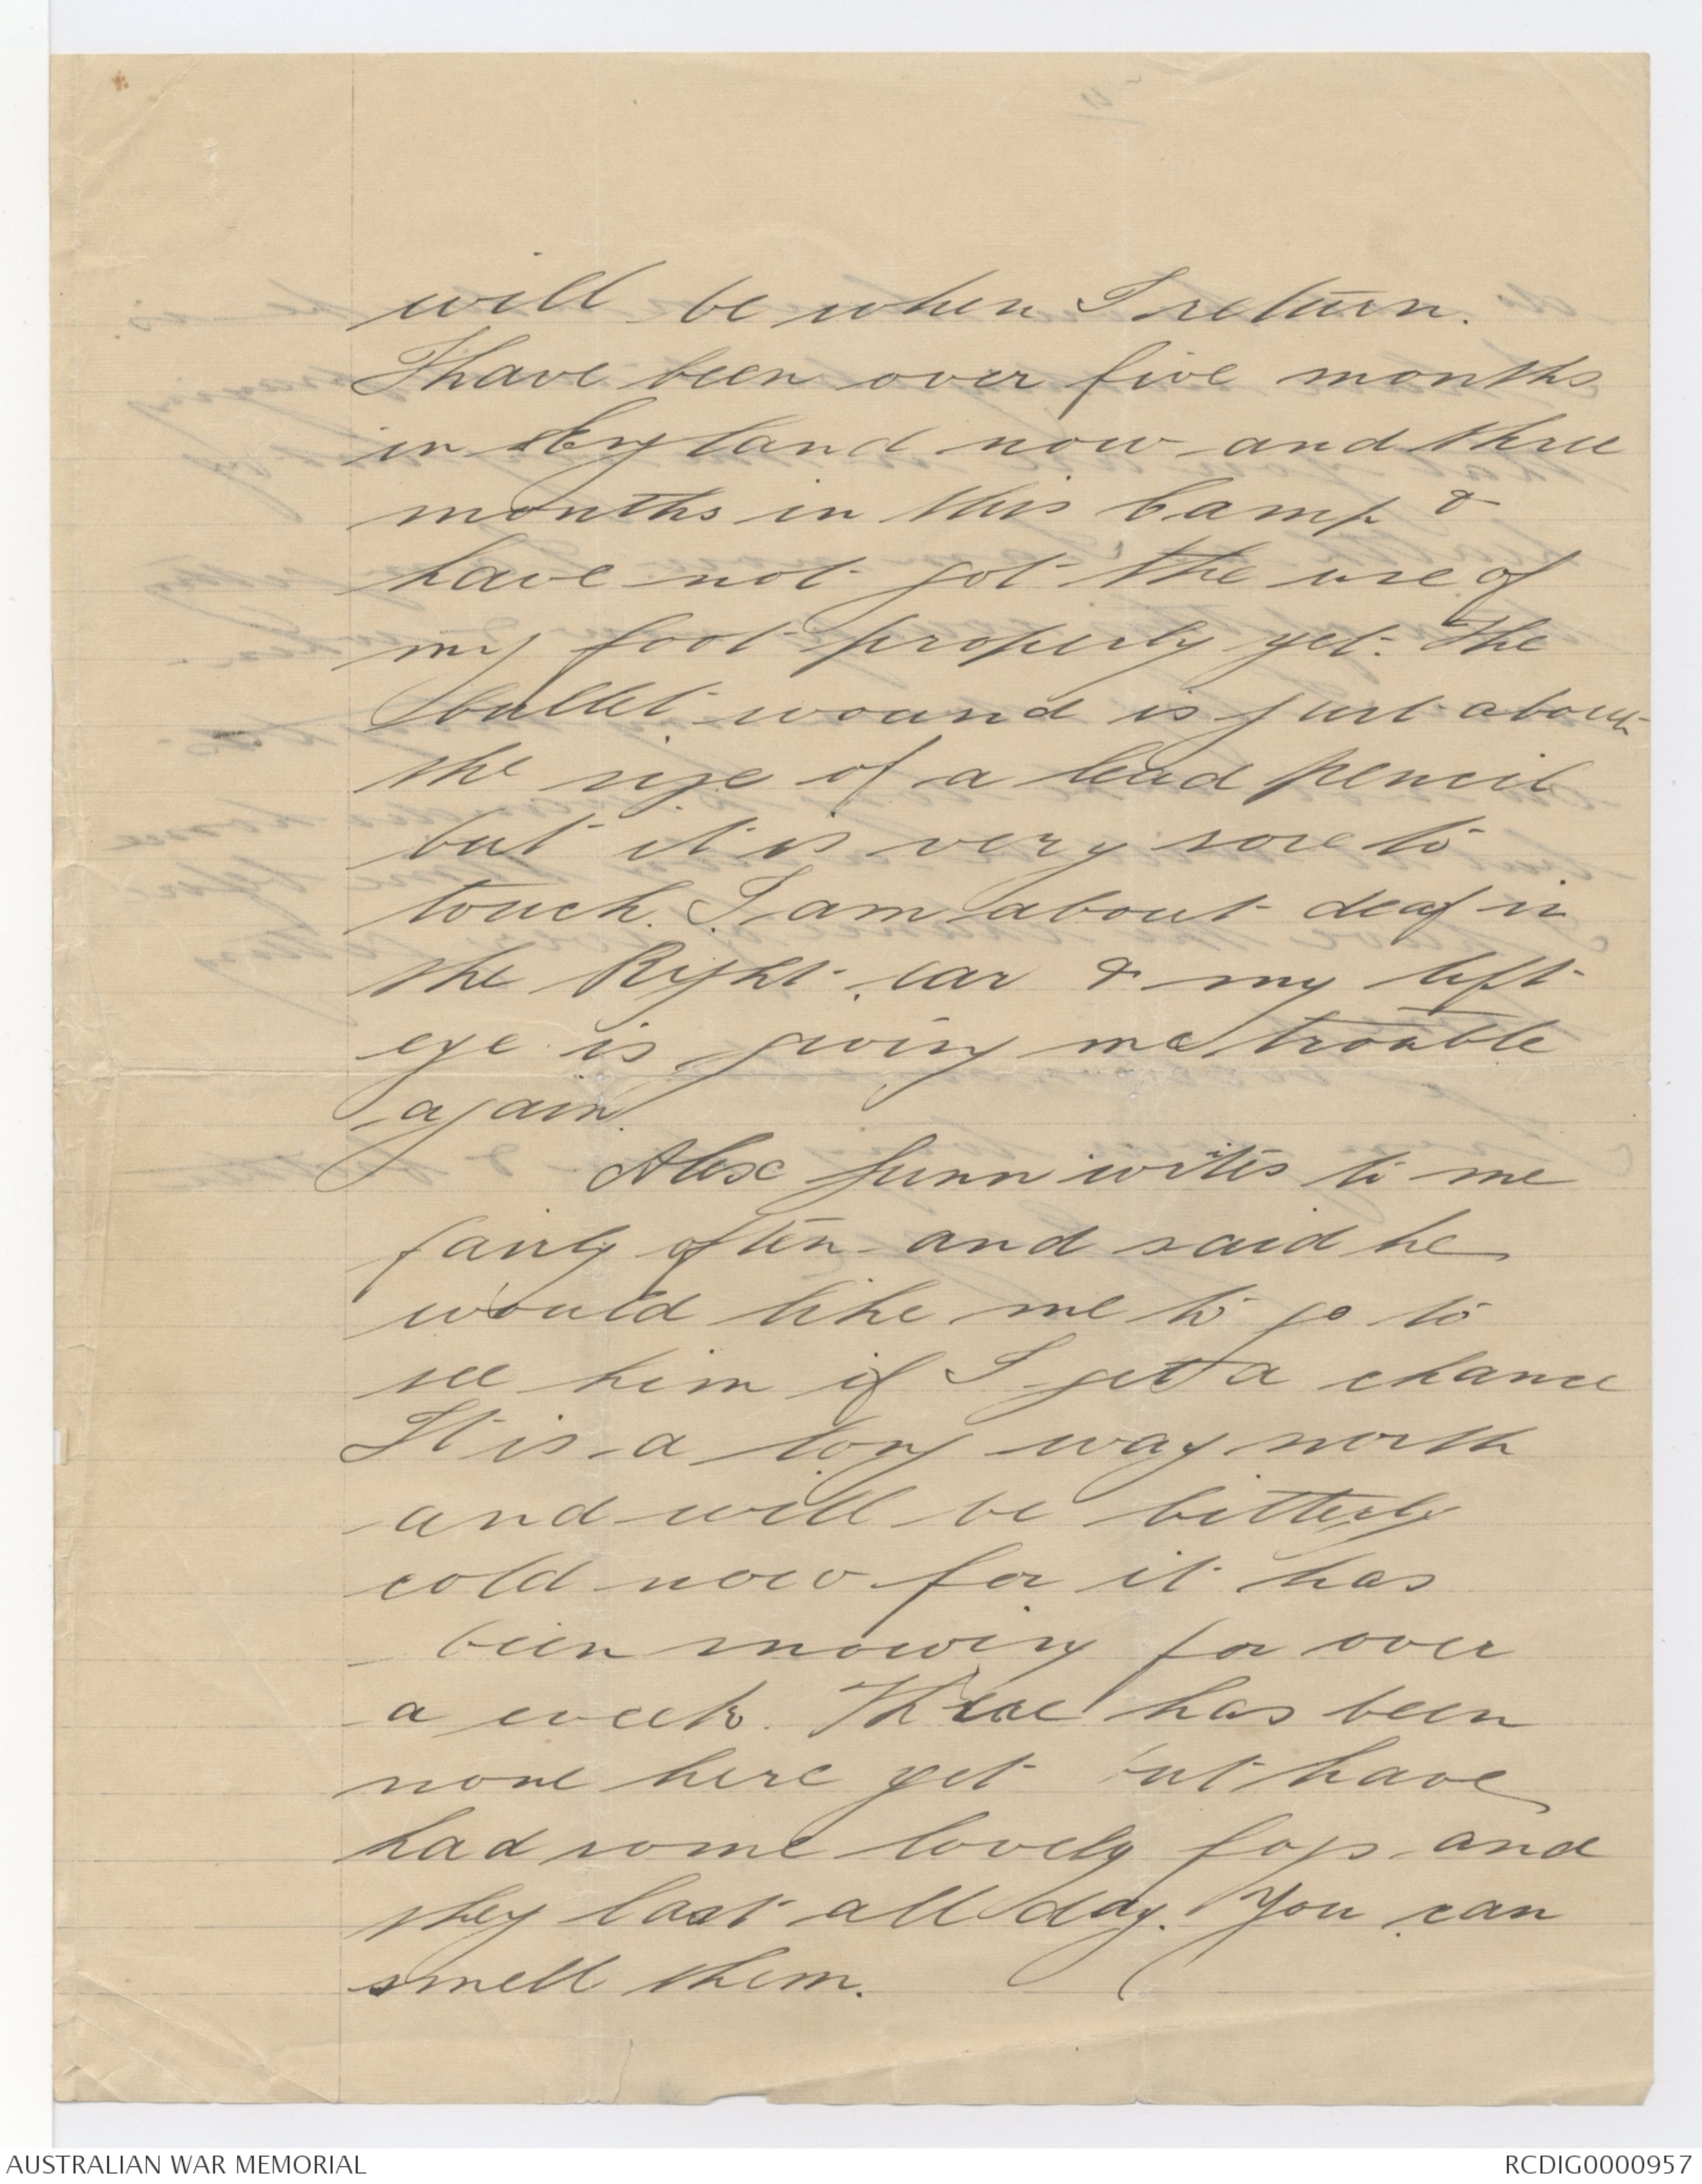 will be when I return.
I have been over five months
in England now and three
months in this Camp &
have not got the use of
my foot properly yet. The
bullet wound is just about
the size of a lead pencil
but it is very sore to
touch. I am about deaf in
the Right ear & my left
eye is giving me trouble
again.
Alex Gunn writes to me
fairly often and said he
would like me to go to
see him if I get a chance
It is a long way north
and will be bitterly
cold now for it has
been snowing for over
a week. There has been
none here yet but have
had some lovely fogs and
they last all day. You can
smell them.
AUSTRALIAN WAR MEMORIAL
RCDIG0000957